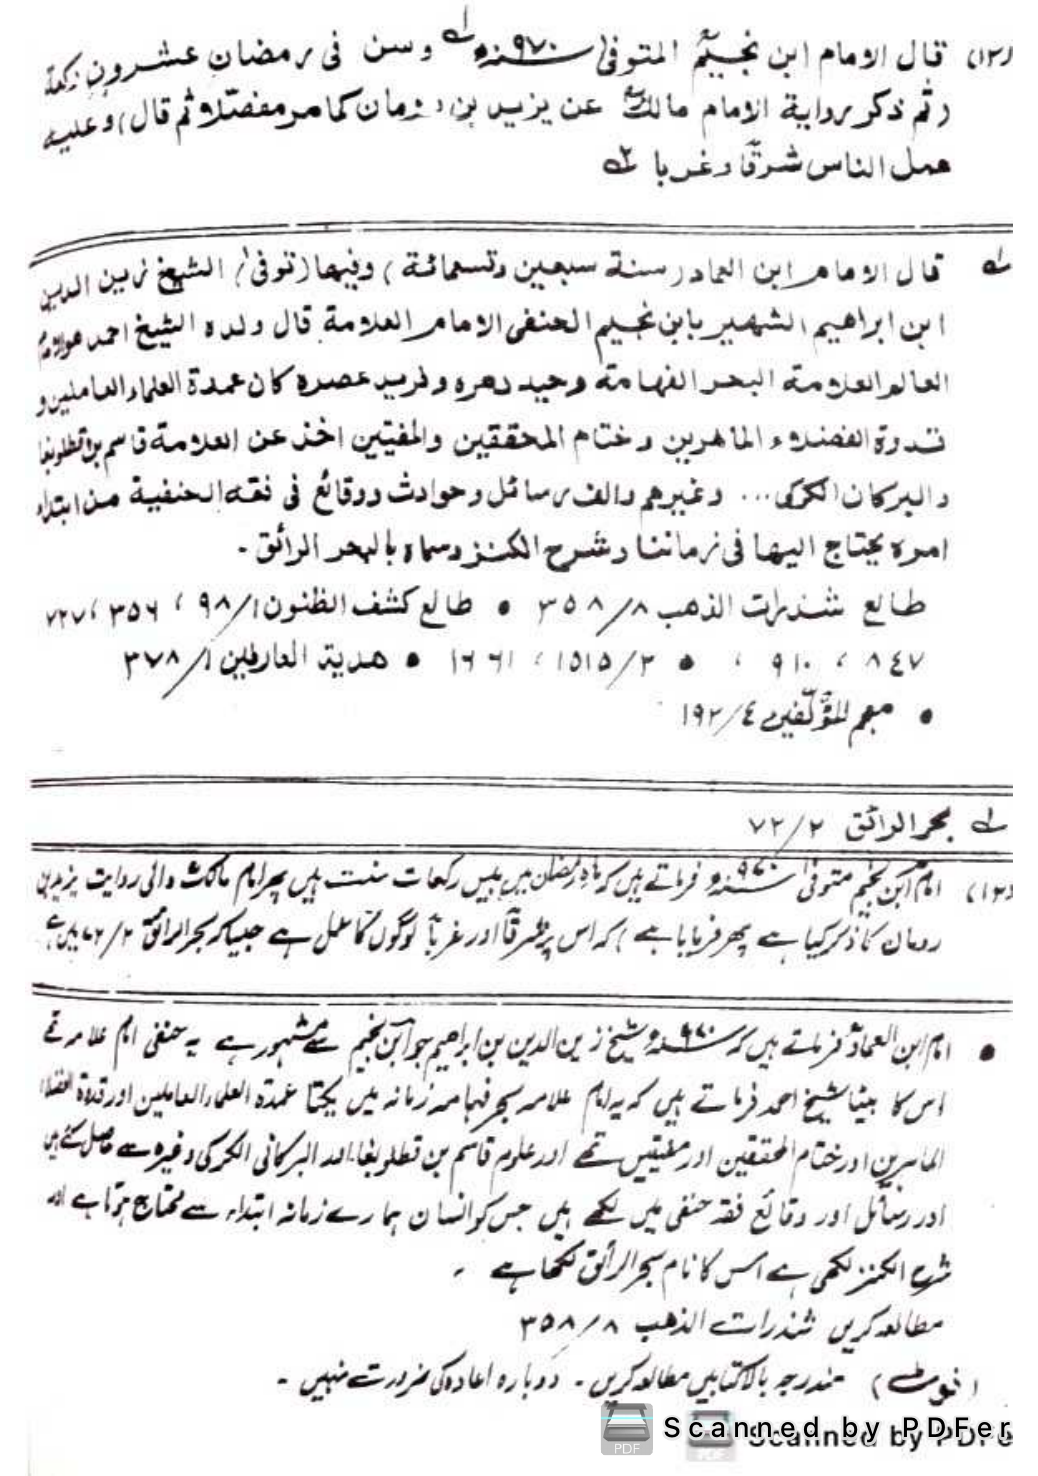 (۱۳) قال الامام ابن نجیمؒ المتوفیٰ ۹۷۰ھ لہ وسن فی رمضان عشرون رکعۃ
(ثم ذکر روایۃ الامام مالکؒ عن یزید بن رومان کما مر مفصّلا ثم قال) وعلیہ
عمل الناس شرقًا وغربا لہ
لہ قال الامام ابن العماد (سنة سبعین وتسعمائة) وفیھا (توفی) الشیخ زین الدین
ابن ابراھیم الشھیر بابن نجیم الحنفی الامام العلامة قال ولدہ الشیخ احمد ھوالامام
العالم العلامة البحر الفھامة وحید دھرہ وفرید عصرہ کان عمدة العلماء العاملین و
قدوة الفضلاء الماھرین وختام المحققین والمفتیین اخذ عن العلامة قاسم بن قطلوبغا
والبرکان الکرکی... وغیرھم والف رسائل وحوادث ووقائع فی فقہ الحنفیة من ابتداء
امرہ یحتاج الیھا فی زماننا وشرح الکنز وسماہ بالبحر الرائق -
طالع شذرات الذھب ۸/۳۵۸ • طالع کشف الظنون ۱/۹۸، ۳۵۶، ۷۲۷
۸٤۷، ۹۱۰، • ۲/۱۵۱۵، ۱۶۶۱ • ھدیة العارفین ۱/۳۷۸
• معجم المؤلّفین ٤/۱۹۲
لہ بحر الرائق ۲/۷۲
(۱۳) امام ابن نجیم متوفیٰ ۹۷۰ھ فرماتے ہیں کہ ماہ رمضان میں بیس رکعات سنت ہیں پھر امام مالکؒ والی روایت یزید بن
رومان کا ذکر کیا ہے پھر فرمایا ہے) کہ اس پر شرقًا اور غربًا لوگوں کا عمل ہے جیسا کہ بحر الرائق ۲/۷۲ میں ہے
• امام ابن العمادؒ فرماتے ہیں کہ ۹۷۰ھ شیخ زین الدین بن ابراہیم جو ابن نجیم سے مشہور ہے یہ حنفی امام علامہ تھے
اس کا بیٹا شیخ احمد فرماتے ہیں کہ یہ امام علامہ بحر فہامہ زمانہ میں یکتا عمدۃ العلماء العاملین اور قدوۃ الفضلاء
الماہرین اور ختام المحققین اور مفتیین تھے اور علوم قاسم بن قطلوبغا اور البرکانی الکرکی وغیرہ سے حاصل کئے ہیں
اور رسائل اور وقائع فقہ حنفی میں لکھے ہیں جس کو انسان ہمارے زمانہ ابتداء سے محتاج ہوتا ہے اور
شرح الکنز لکھی ہے اس کا نام بحر الرائق لکھا ہے ۔
مطالعہ کریں شذرات الذھب ۸/۳۵۸
(نوٹ) مندرجہ بالا کتابیں مطالعہ کریں - دوبارہ اعادہ کی ضرورت نہیں -
PDF Scanned by PDFer
PDF Scanned by PDFe